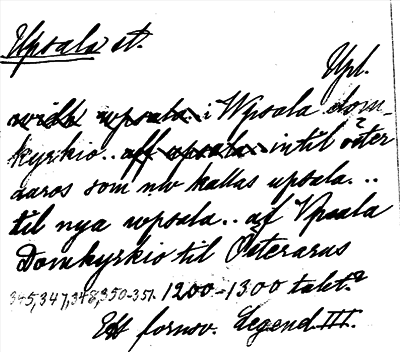 Upsala st.
Upl.
widh wpsala.. i Wpsala dom-
kyrkio.. aff upsala.. in til öster
aaros som nw kallas upsala...
til nya wpsala.. af Vpsala
Domkyrkio til Österarus
345, 347, 348, 350-351. 1200-1300 talet?
Ett fornsv. Legend. III.